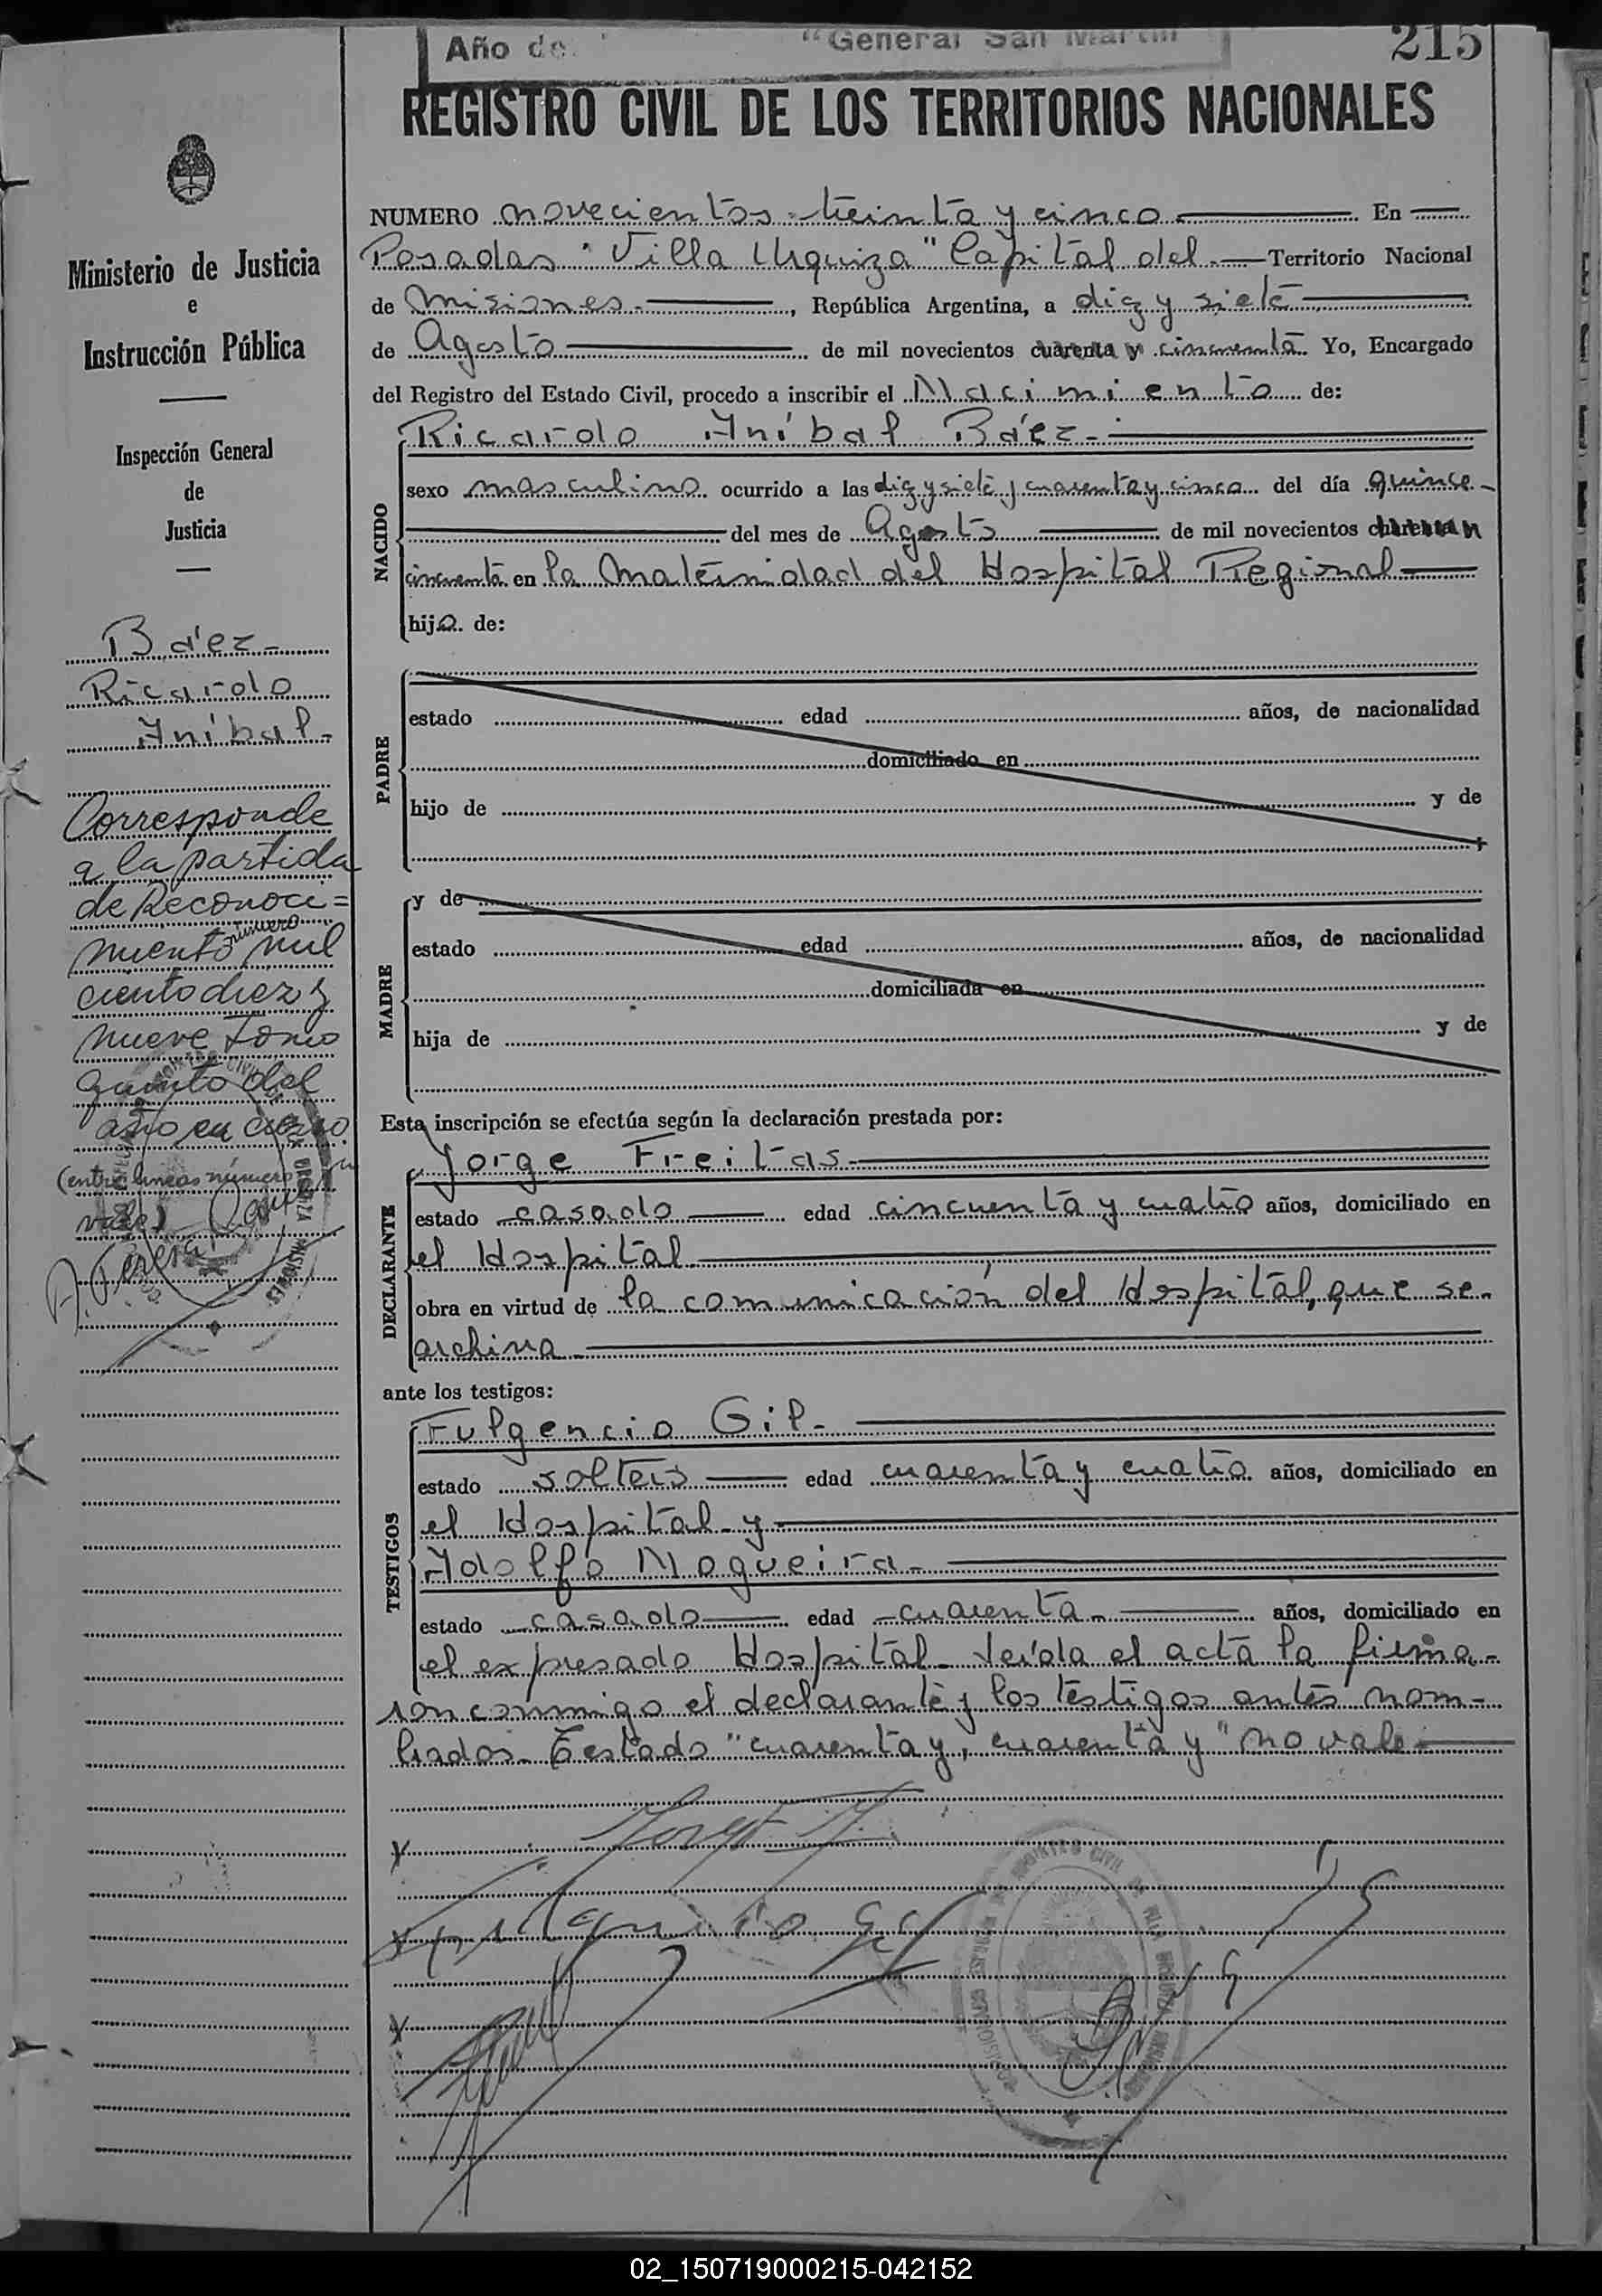 Año de "General San Martín
215
REGISTRO CIVIL DE LOS TERRITORIOS NACIONALES
Ministerio de Justicia
e
Instrucción Pública
Inspección General
de
Justicia
Báez-
Ricardo
Aníbal-
Corresponde
a la partida
de Reconoci=
miento número mil
ciento diez y
nueve Tomo
quinto del
año en curso
(entre lineas número
vale)
NUMERO novecientos treinta y cinco En
Posadas "Villa Urquiza" Capital del Territorio Nacional
de Misiones , República Argentina, a diez y siete
de Agosto de mil novecientos cuarenta y cincuenta Yo, Encargado
del Registro del Estado Civil, procedo a inscribir el Nacimiento de:
NACIDO
Ricardo Aníbal Báez-
sexo masculino ocurrido a las diez y siete y cuarenta y cinco del día quince
del mes de Agosto de mil novecientos
cincuenta en la Maternidad del Hospital Regional
hijo de:
PADRE
estado edad años, de nacionalidad
domiciliado en
hijo de y de
MADRE
y de
estado edad años, de nacionalidad
domiciliada en
hija de y de
Esta inscripción se efectúa según la declaración prestada por:
DECLARANTE
Jorge Freitas
estado casado edad cincuenta y cuatro años, domiciliado en
el Hospital
obra en virtud de la comunicación del Hospital, que se
archiva
ante los testigos:
TESTIGOS
Fulgencio Gil-
estado soltero edad cuarenta y cuatro años, domiciliado en
el Hospital y
Adolfo Nogueira-
estado casado edad cuarenta años, domiciliado en
el expresado Hospital- Leída el acta la firma-
ron conmigo el declarante y los testigos antes nom-
brados. Testado "cuarenta y, cuarenta y" no vale
Fulgencio Gil
02_150719000215-042152